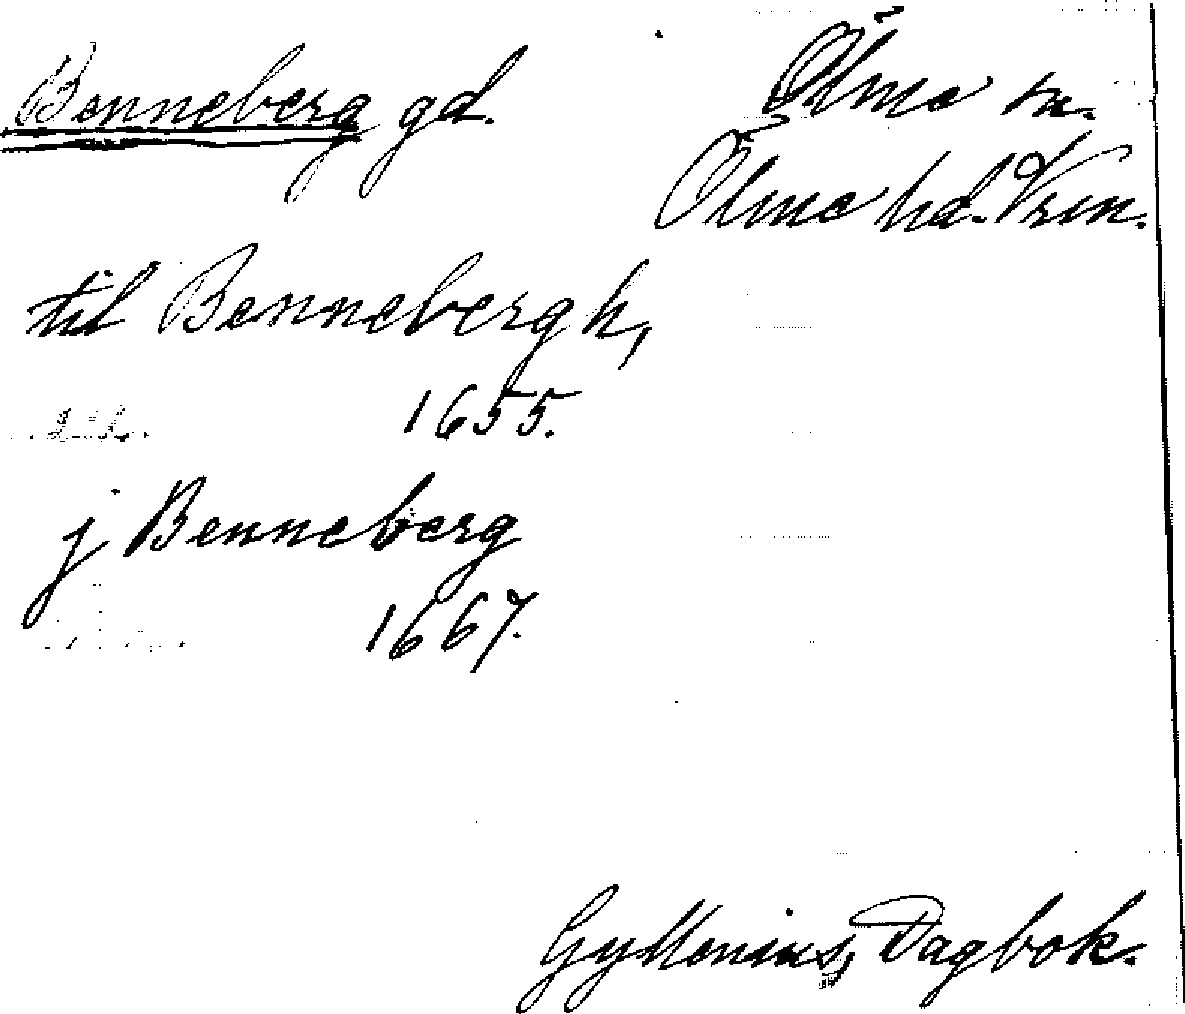 Benneberg gd.
Ölme sn.
Ölme hd. Vrm.
til Bennebergh,
1655.
j Benneberg
1667.
Gyllenius, Dagbok.